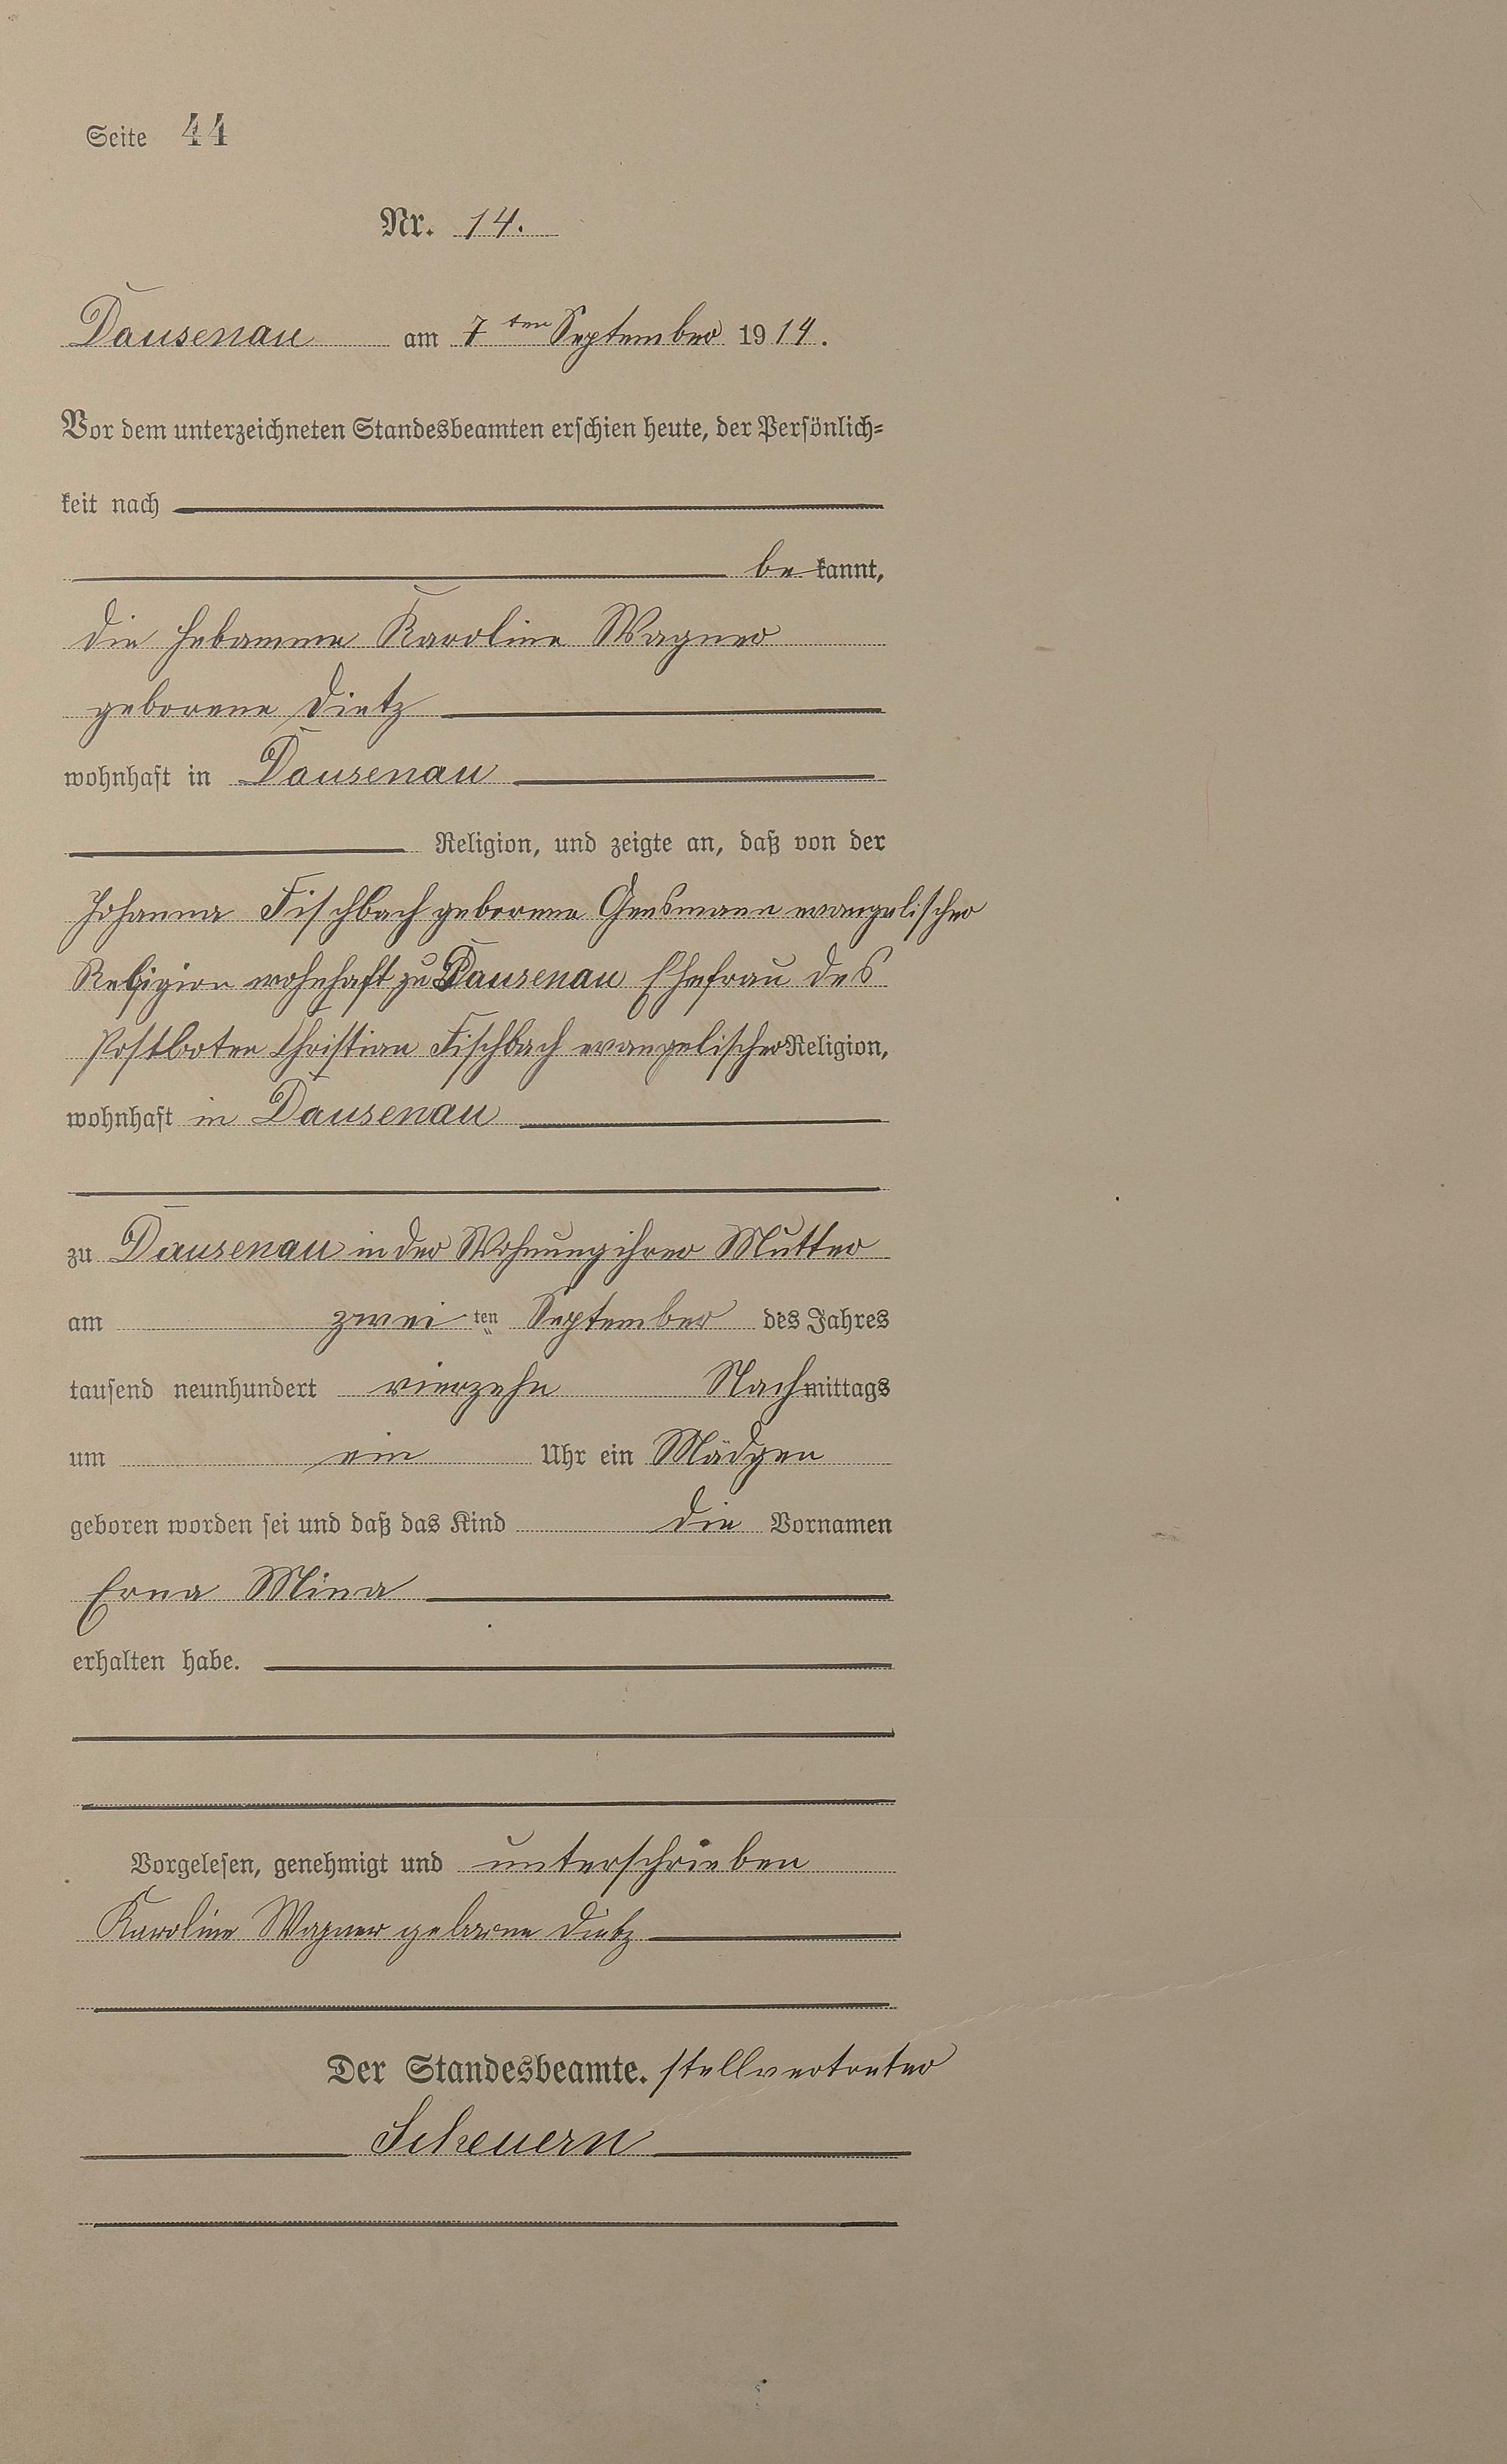 Seite 44
Nr. 14.
Dausenau am 7ten September 1914.
Vor dem unterzeichneten Standesbeamten erschien heute, der Persönlich-
keit nach
be kannt,
die Hebamme Karoline Wagner
geborene Dietz
wohnhaft in Dausenau
Religion, und zeigte an, daß von der
Johanna Fischbach geborene Gensmann evangelischer
Religion wohnhaft zu Dausenau Ehefrau des
Postboten Christian Fischbach evangelischer Religion,
wohnhaft in Dausenau
zu Dausenau in der Wohnung ihrer Mutter
am zwei ten September des Jahres
tausend neunhundert vierzehn Nachmittags
um ein Uhr ein Mädgen
geboren worden sei und daß das Kind die Vornamen
Erna Mina
erhalten habe.
Vorgelesen, genehmigt und unterschrieben
Karoline Wagner geborne Dietz
Der Standesbeamte. stellvertreter
Scheuern